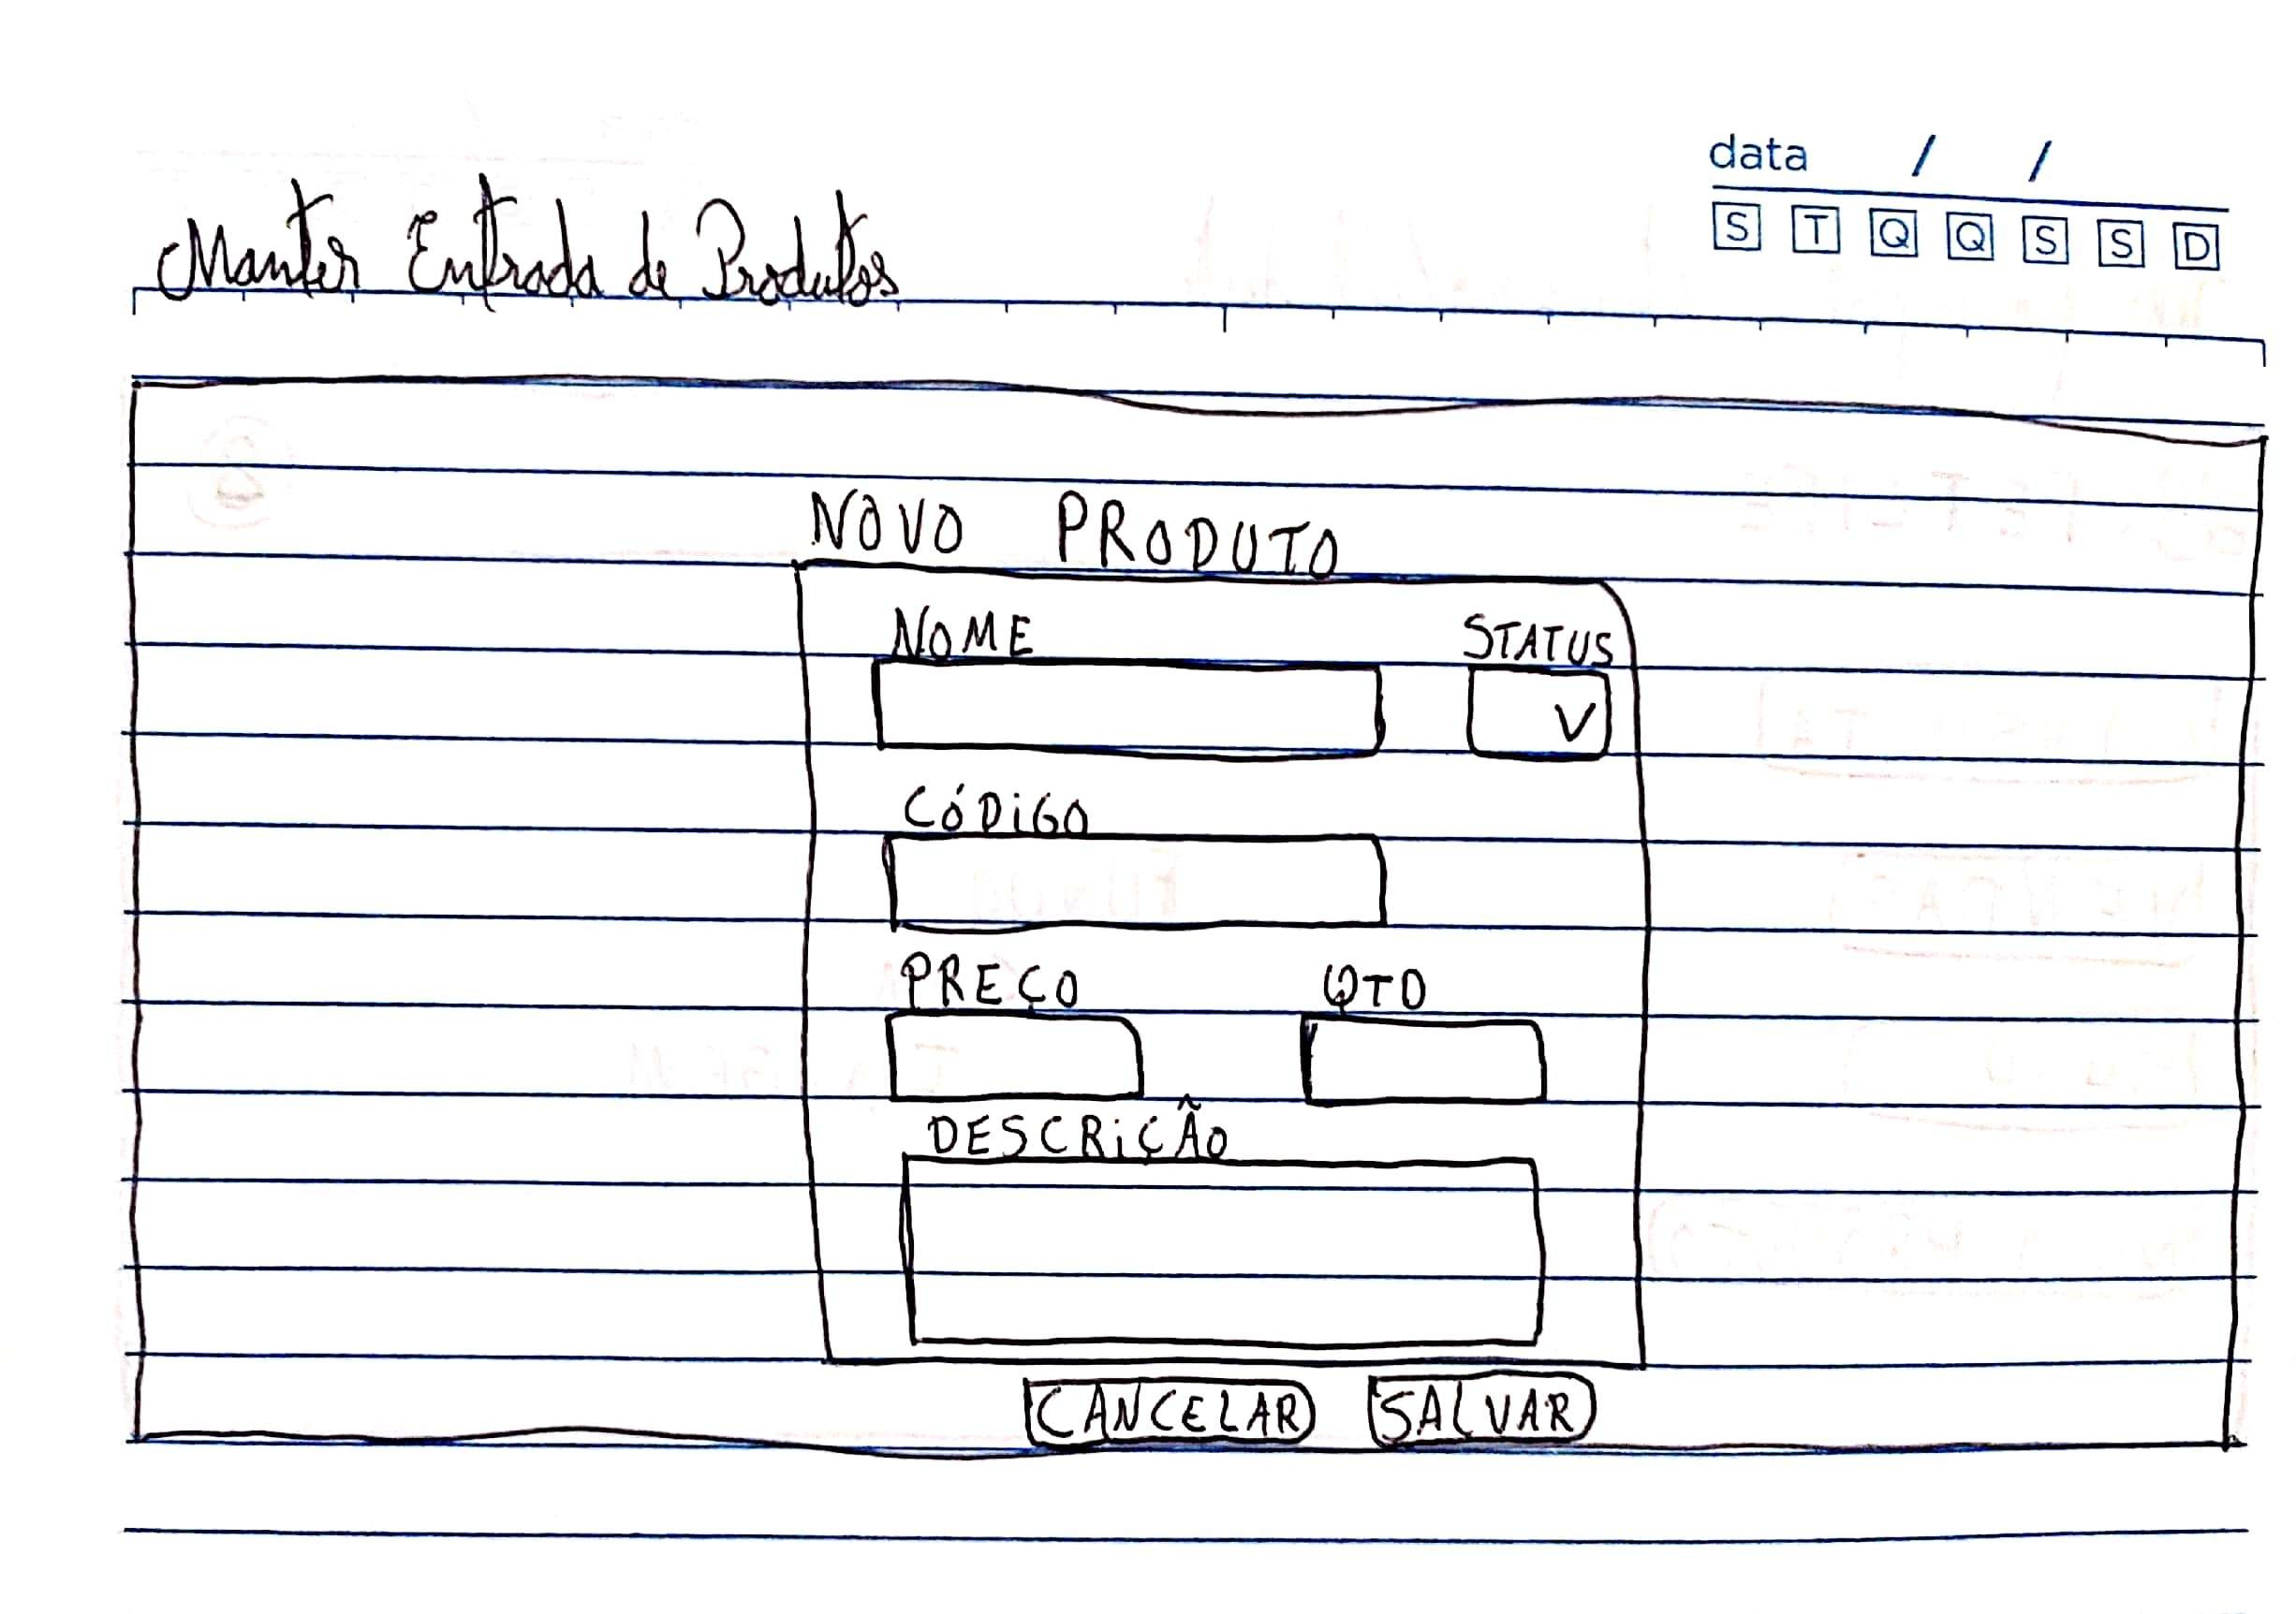 data / /
S T Q Q S S D
Manter Entrada de Produtos
NOVO PRODUTO
NOME STATUS
V
CÓDIGO
PREÇO QTD
DESCRIÇÃO
CANCELAR SALVAR